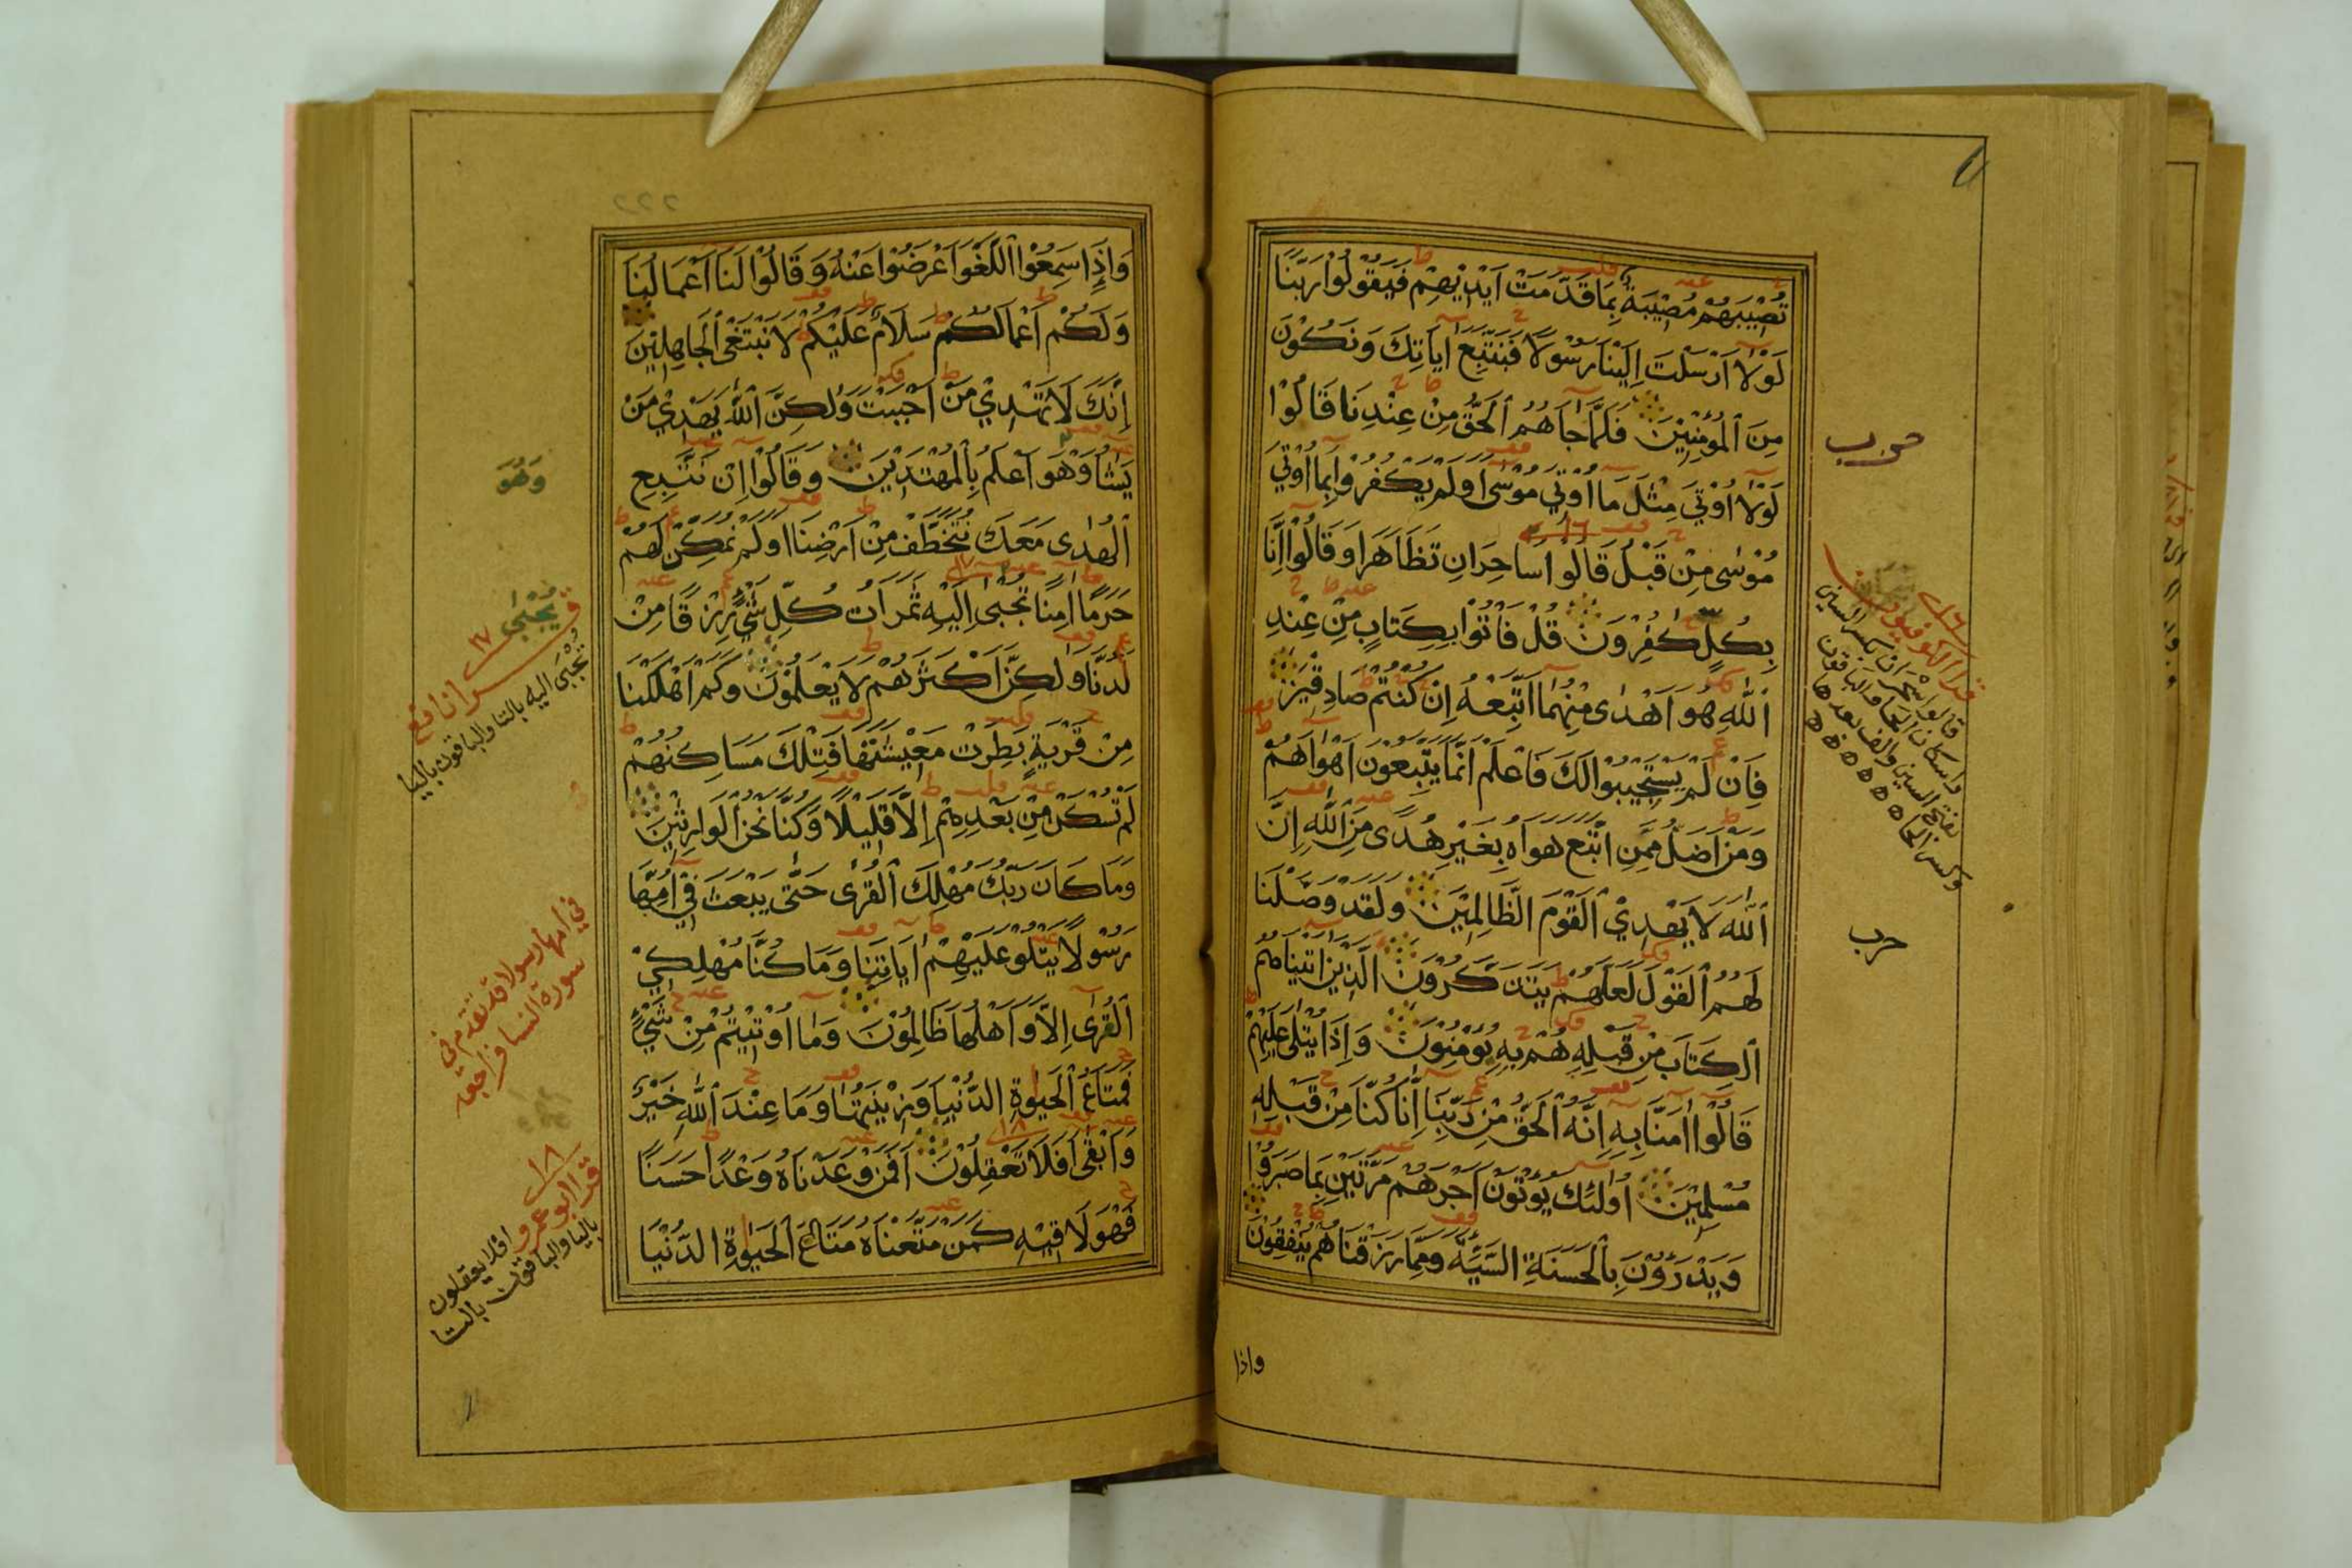 تُصِيْبَهُمْ مُصِيْبَةٌ بِمَا قَدَّمَتْ اَيْدِيْهِمْ فَيَقُوْلُوْا رَبَّنَا
لَوْلَا اَرْسَلْتَ اِلَيْنَا رَسُوْلًا فَنَتَّبِعَ اٰيَاتِكَ وَنَكُوْنَ
مِنَ الْمُؤْمِنِيْنَ فَلَمَّا جَاۤهُمُ الْحَقُّ مِنْ عِنْدِنَا قَالُوْا
لَوْلَا اُوْتِيَ مِثْلَ مَا اُوْتِيَ مُوْسٰى اَوَلَمْ يَكْفُرُوْا بِمَا اُوْتِيَ
مُوْسٰى مِنْ قَبْلُ قَالُوْا سَاحِرَانِ تَظَاهَرَا وَقَالُوْا اِنَّا
بِكُلٍّ كٰفِرُوْنَ قُلْ فَاْتُوْا بِكِتَابٍ مِنْ عِنْدِ
اللّٰهِ هُوَ اَهْدٰى مِنْهُمَا اَتَّبِعْهُ اِنْ كُنْتُمْ صَادِقِيْنَ
فَاِنْ لَمْ يَسْتَجِيْبُوْا لَكَ فَاعْلَمْ اَنَّمَا يَتَّبِعُوْنَ اَهْوَاۤهُمْ
وَمَنْ اَضَلُّ مِمَّنِ اتَّبَعَ هَوَاهُ بِغَيْرِ هُدًى مِنَ اللّٰهِ اِنَّ
اللّٰهَ لَا يَهْدِيْ الْقَوْمَ الظَّالِمِيْنَ وَلَقَدْ وَصَّلْنَا
لَهُمُ الْقَوْلَ لَعَلَّهُمْ يَتَذَكَّرُوْنَ الَّذِيْنَ اٰتَيْنَاهُمُ
الْكِتَابَ مِنْ قَبْلِهٖ هُمْ بِهٖ يُؤْمِنُوْنَ وَاِذَا يُتْلٰى عَلَيْهِمْ
قَالُوْا اٰمَنَّا بِهٖ اِنَّهُ الْحَقُّ مِنْ رَبِّنَا اِنَّا كُنَّا مِنْ قَبْلِهٖ
مُسْلِمِيْنَ اُولٰئِكَ يُؤْتَوْنَ اَجْرَهُمْ مَرَّتَيْنِ بِمَا صَبَرُوْا
وَيَدْرَؤُنَ بِالْحَسَنَةِ السَّيِّئَةَ وَمِمَّا رَزَقْنَاهُمْ يُنْفِقُوْنَ
واذا
حزب
١٦
قرا الكوفيون
قالوا سحران بكسر السين
واسكان الحا والباقون
بفتح السين والف بعدها
وكسر الحا ه ه ه ه ه ه
حزب
وَاِذَا سَمِعُوْا اللَّغْوَ اَعْرَضُوْا عَنْهُ وَقَالُوْا لَنَا اَعْمَالُنَا
وَلَكُمْ اَعْمَالُكُمْ سَلَامٌ عَلَيْكُمْ لَا نَبْتَغِى الْجَاهِلِيْنَ
اِنَّكَ لَا تَهْدِيْ مَنْ اَحْبَبْتَ وَلٰكِنَّ اللّٰهَ يَهْدِيْ مَنْ
يَشَاۤ وَهْوَ اَعْلَمُ بِالْمُهْتَدِيْنَ وَقَالُوْا اِنْ نَتَّبِعِ
الْهُدٰى مَعَكَ نُتَخَطَّفْ مِنْ اَرْضِنَا اَوَلَمْ نُمَكِّنْ لَهُمْ
حَرَمًا اٰمِنًا تُجْبٰى اِلَيْهِ ثَمَرَاتُ كُلِّ شَيْءٍ رِزْقًا مِنْ
لَدُنَّا وَلٰكِنَّ اَكْثَرَهُمْ لَا يَعْلَمُوْنَ وَكَمْ اَهْلَكْنَا
مِنْ قَرْيَةٍ بَطِرَتْ مَعِيْشَتَهَا فَتِلْكَ مَسَاكِنُهُمْ
لَمْ تُسْكَنْ مِنْ بَعْدِهِمْ اِلَّا قَلِيْلًا وَكُنَّا نَحْنُ الْوَارِثِيْنَ
وَمَا كَانَ رَبُّكَ مُهْلِكَ الْقُرٰى حَتّٰى يَبْعَثَ فِيْ اُمِّهَا
رَسُوْلًا يَتْلُوْ عَلَيْهِمْ اٰيَاتِنَا وَمَا كُنَّا مُهْلِكِيْ
الْقُرٰى اِلَّا وَاَهْلُهَا ظَالِمُوْنَ وَمَا اُوْتِيْتُمْ مِنْ شَيْءٍ
فَمَتَاعُ الْحَيٰوةِ الدُّنْيَا وَزِيْنَتُهَا وَمَا عِنْدَ اللّٰهِ خَيْرٌ
وَاَبْقٰى اَفَلَا تَعْقِلُوْنَ اَفَمَنْ وَعَدْنَاهُ وَعْدًا حَسَنًا
فَهْوَ لَاقِيْهِ كَمَنْ مَتَّعْنَاهُ مَتَاعَ الْحَيٰوةِ الدُّنْيَا
وَهُوَ
يُجْبٰى
١٧
قرا نافع
تُجْبٰى اليه بالتا والباقون باليا
في امها رسولا قد تقدم في
سورة النسا فراجعه
١٨
قرا ابو عمرو افلا يعقلون
باليا والباقون بالتا